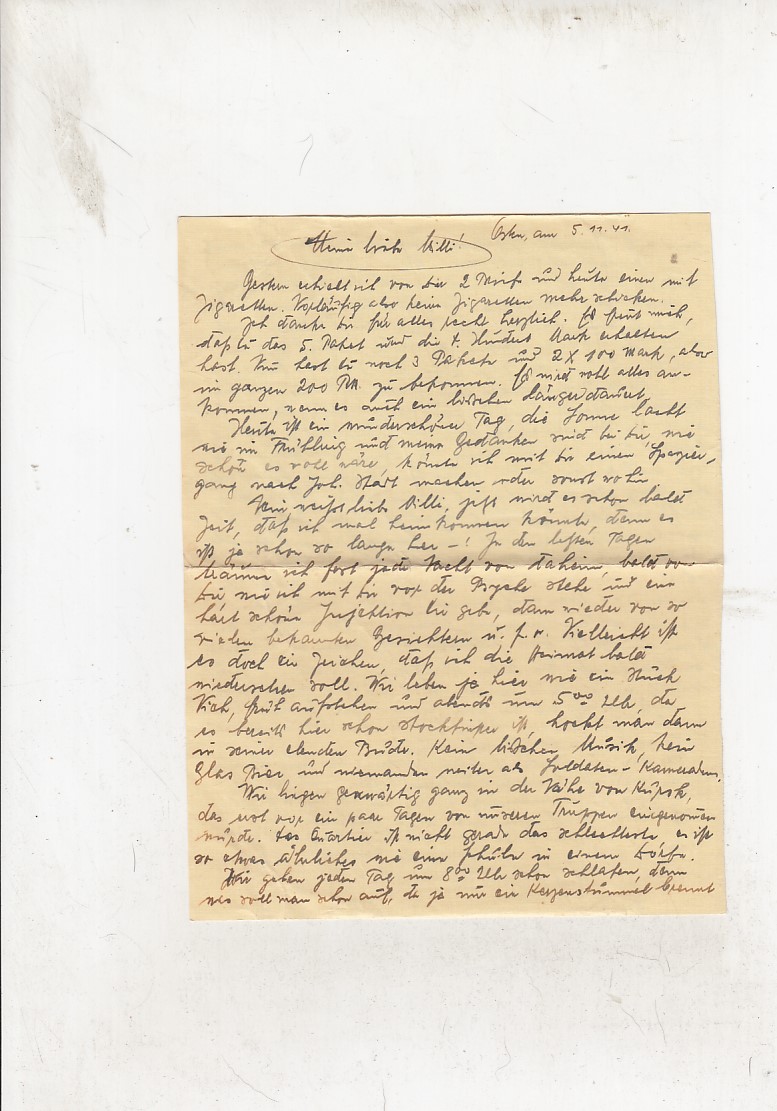 Osten, am 5.11.41.
Meine liebe Milli!
Gestern erhielt ich von Dir 2 Briefe und heute einen mit
Zigaretten. Vorläufig also keine Zigaretten mehr schicken.
Ich danke Dir für alles recht herzlich. Es freut mich,
daß Du das 5. Paket und die 4. Hundert Mark erhalten
hast. Nun hast Du noch 3 Pakete und 2 x 100 Mark, also
im ganzen 200 RM. zu bekommen. Es wird wohl alles an-
kommen, wenn es auch ein bißchen länger dauert.
Heute ist ein wunderschöner Tag, die Sonne lacht
wie im Frühling und meine Gedanken sind bei Dir, wie
schön es wohl wäre, könnte ich mit Dir einen Spazier-
gang nach Joh. Stadt machen oder sonst wo hin
weißt liebe Milli, jetzt wird es schon bald
Zeit, daß ich mal heimkommen könnte, denn es
ist ja schon so lange her –! In den letzten Tagen
träume ich fast jede Nacht von daheim, bald von
Dir wie ich mit Dir vor der Psyche stehe und ein
schöne Dir gebe, dann wieder von so
vielen bekannten Gesichtern u.s.w. Vielleicht ist
es doch ein Zeichen, daß ich die Heimat bald
wiedersehen soll. Wir leben ja hier wie ein Stück
Vieh, früh aufstehen und abends um 5⁰⁰ Uhr, da
es bereits hier schon stockfinster ist, hockt man dann
in seiner elenden Bude. Kein bißchen Musik, kein
Glas Bier und niemanden weiter als Soldaten-Kameraden.
Wir liegen gegenwärtig ganz in der Nähe von Kursk,
das erst vor ein paar Tagen von unseren Truppen eingenommen
wurde. Das Quartier ist nicht gerade das schlechteste, es ist
so etwas ähnliches wie eine Schule in einem Dorfe.
Wir gehen jeden Tag um 8⁰⁰ Uhr schon schlafen, denn
was soll man schon auf, da ja nur ein Kerzenstümmel brennt